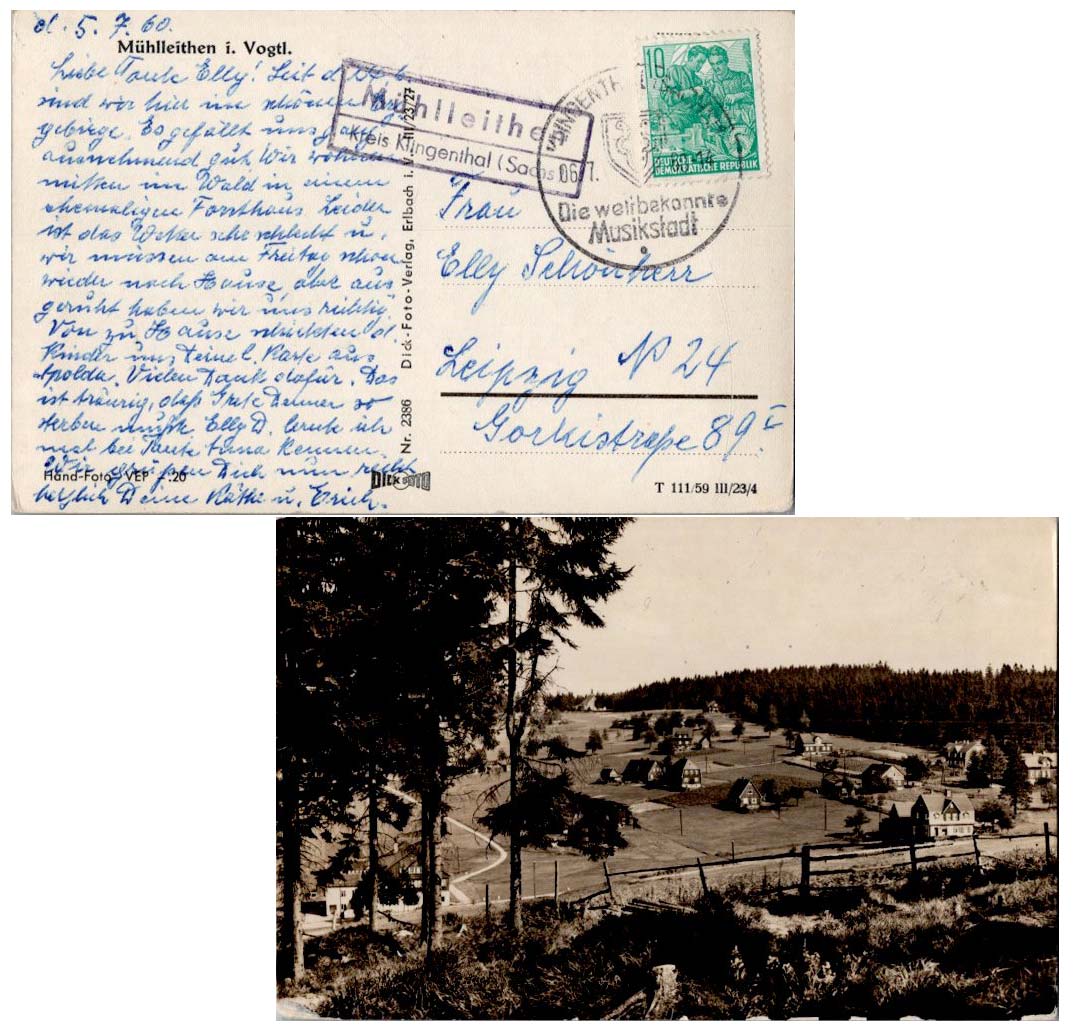 d. 5. 7. 60.
Mühlleithen i. Vogtl.
Liebe Tante Elly! Seit d.
sind wir hier im schönen Erz
gebirge. Es gefällt uns ganz
ausnehmend gut. Wir wohnen
mitten im Wald in einem
ehemaligen Forsthaus. Leider
ist das Wetter sehr schlecht u.
wir müssen am Freitag schon
wieder nach Hause, aber aus
geruht haben wir uns richtig.
Von zu Hause schickten d.
Kinder uns Deine l. Karte aus
Apolda. Vielen Dank dafür. Das
ist traurig, daß Grete so
sterben mußte. Elly D. lernte ich
mal bei Tante Anna kennen.
Wir grüßen Dich nun recht
herzlich Deine Käthe u. Erich.
Hand-Foto VEP -.20
Nr. 2386 Dick-Foto-Verlag, Erlbach i. V. III/23/27
DICK FOTO
Mühlleithen
Kreis Klingenthal (Sachs
KLINGENTH
06.7.
Die weltbekannte
Musikstadt
10
DEUTSCHE
DEMOKRATISCHE REPUBLIK
Frau
Elly Schönherr
Leipzig N 24
Gorkistraße 89 I
T 111/59 III/23/4